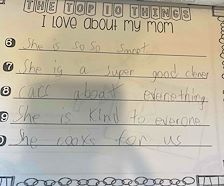 THE TOP 10 THINGS
I LOVE about my mom
6 She is so so smart
7 She is a super good clener
8 cars aboat everething
9 She is kind to everone
she cooks for us